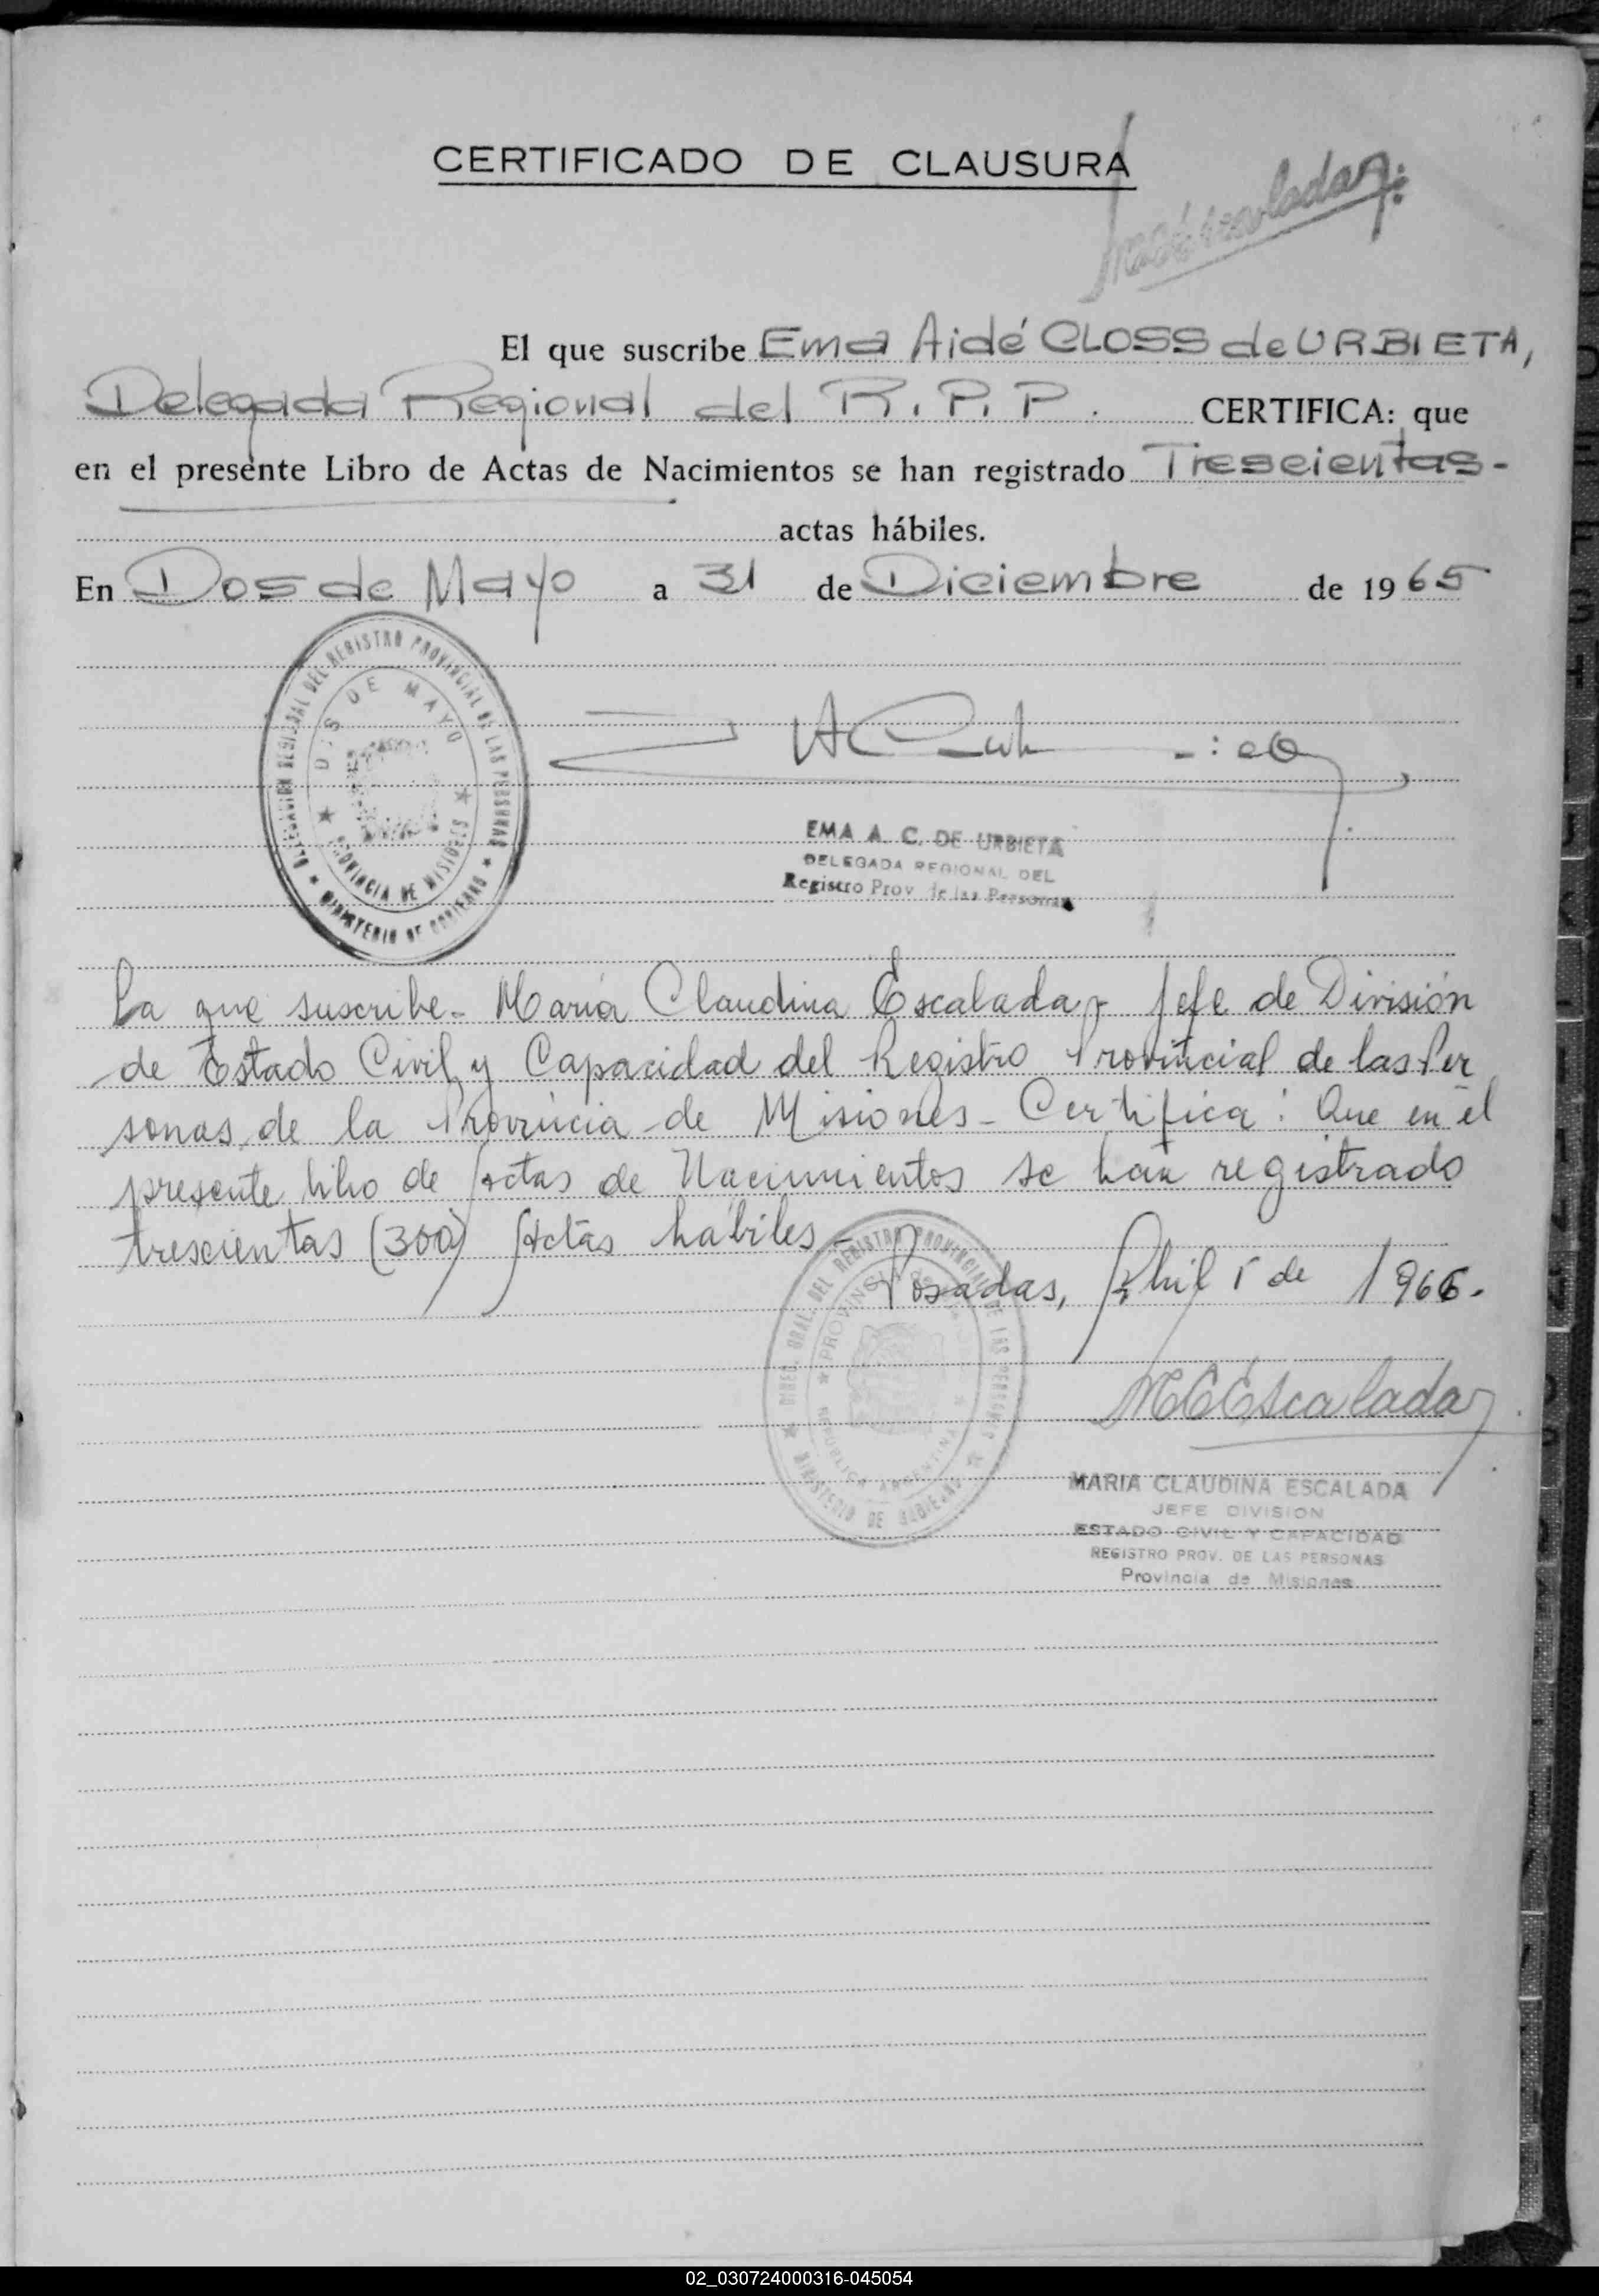 CERTIFICADO DE CLAUSURA
El que suscribe Ema Aidé CLOSS de URBIETA,
Delegada Regional del R. P. P. CERTIFICA: que
en el presente Libro de Actas de Nacimientos se han registrado Trescientas-
actas hábiles.
En Dos de Mayo a 31 de Diciembre de 1965
DELEGACION REGIONAL DEL REGISTRO PROVINCIAL DE LAS PERSONAS ★ MINISTERIO DE GOBIERNO ★
DOS DE MAYO ★ PROVINCIA DE MISIONES ★
EMA A. C. DE URBIETA
DELEGADA REGIONAL DEL
Registro Prov de las Personas
La que suscribe- María Claudina Escalada, Jefe de División
de Estado Civil y Capacidad del Registro Provincial de las Per
sonas de la Provincia de Misiones- Certifica: Que en el
presente libro de Actas de Nacimientos se han registrado
trescientas (300) Actas hábiles-
Posadas, Abril 1 de 1966.
DIREC. GRAL. DEL REGISTRO PROVINCIAL DE LAS PERSONAS ★ MINISTERIO DE GOBIERNO ★
PROVINCIA DE MISIONES ★ REPUBLICA ARGENTINA ★
MCEscalada
MARIA CLAUDINA ESCALADA
JEFE DIVISION
ESTADO CIVIL Y CAPACIDAD
REGISTRO PROV. DE LAS PERSONAS
Provincia de Misiones
02_030724000316-045054